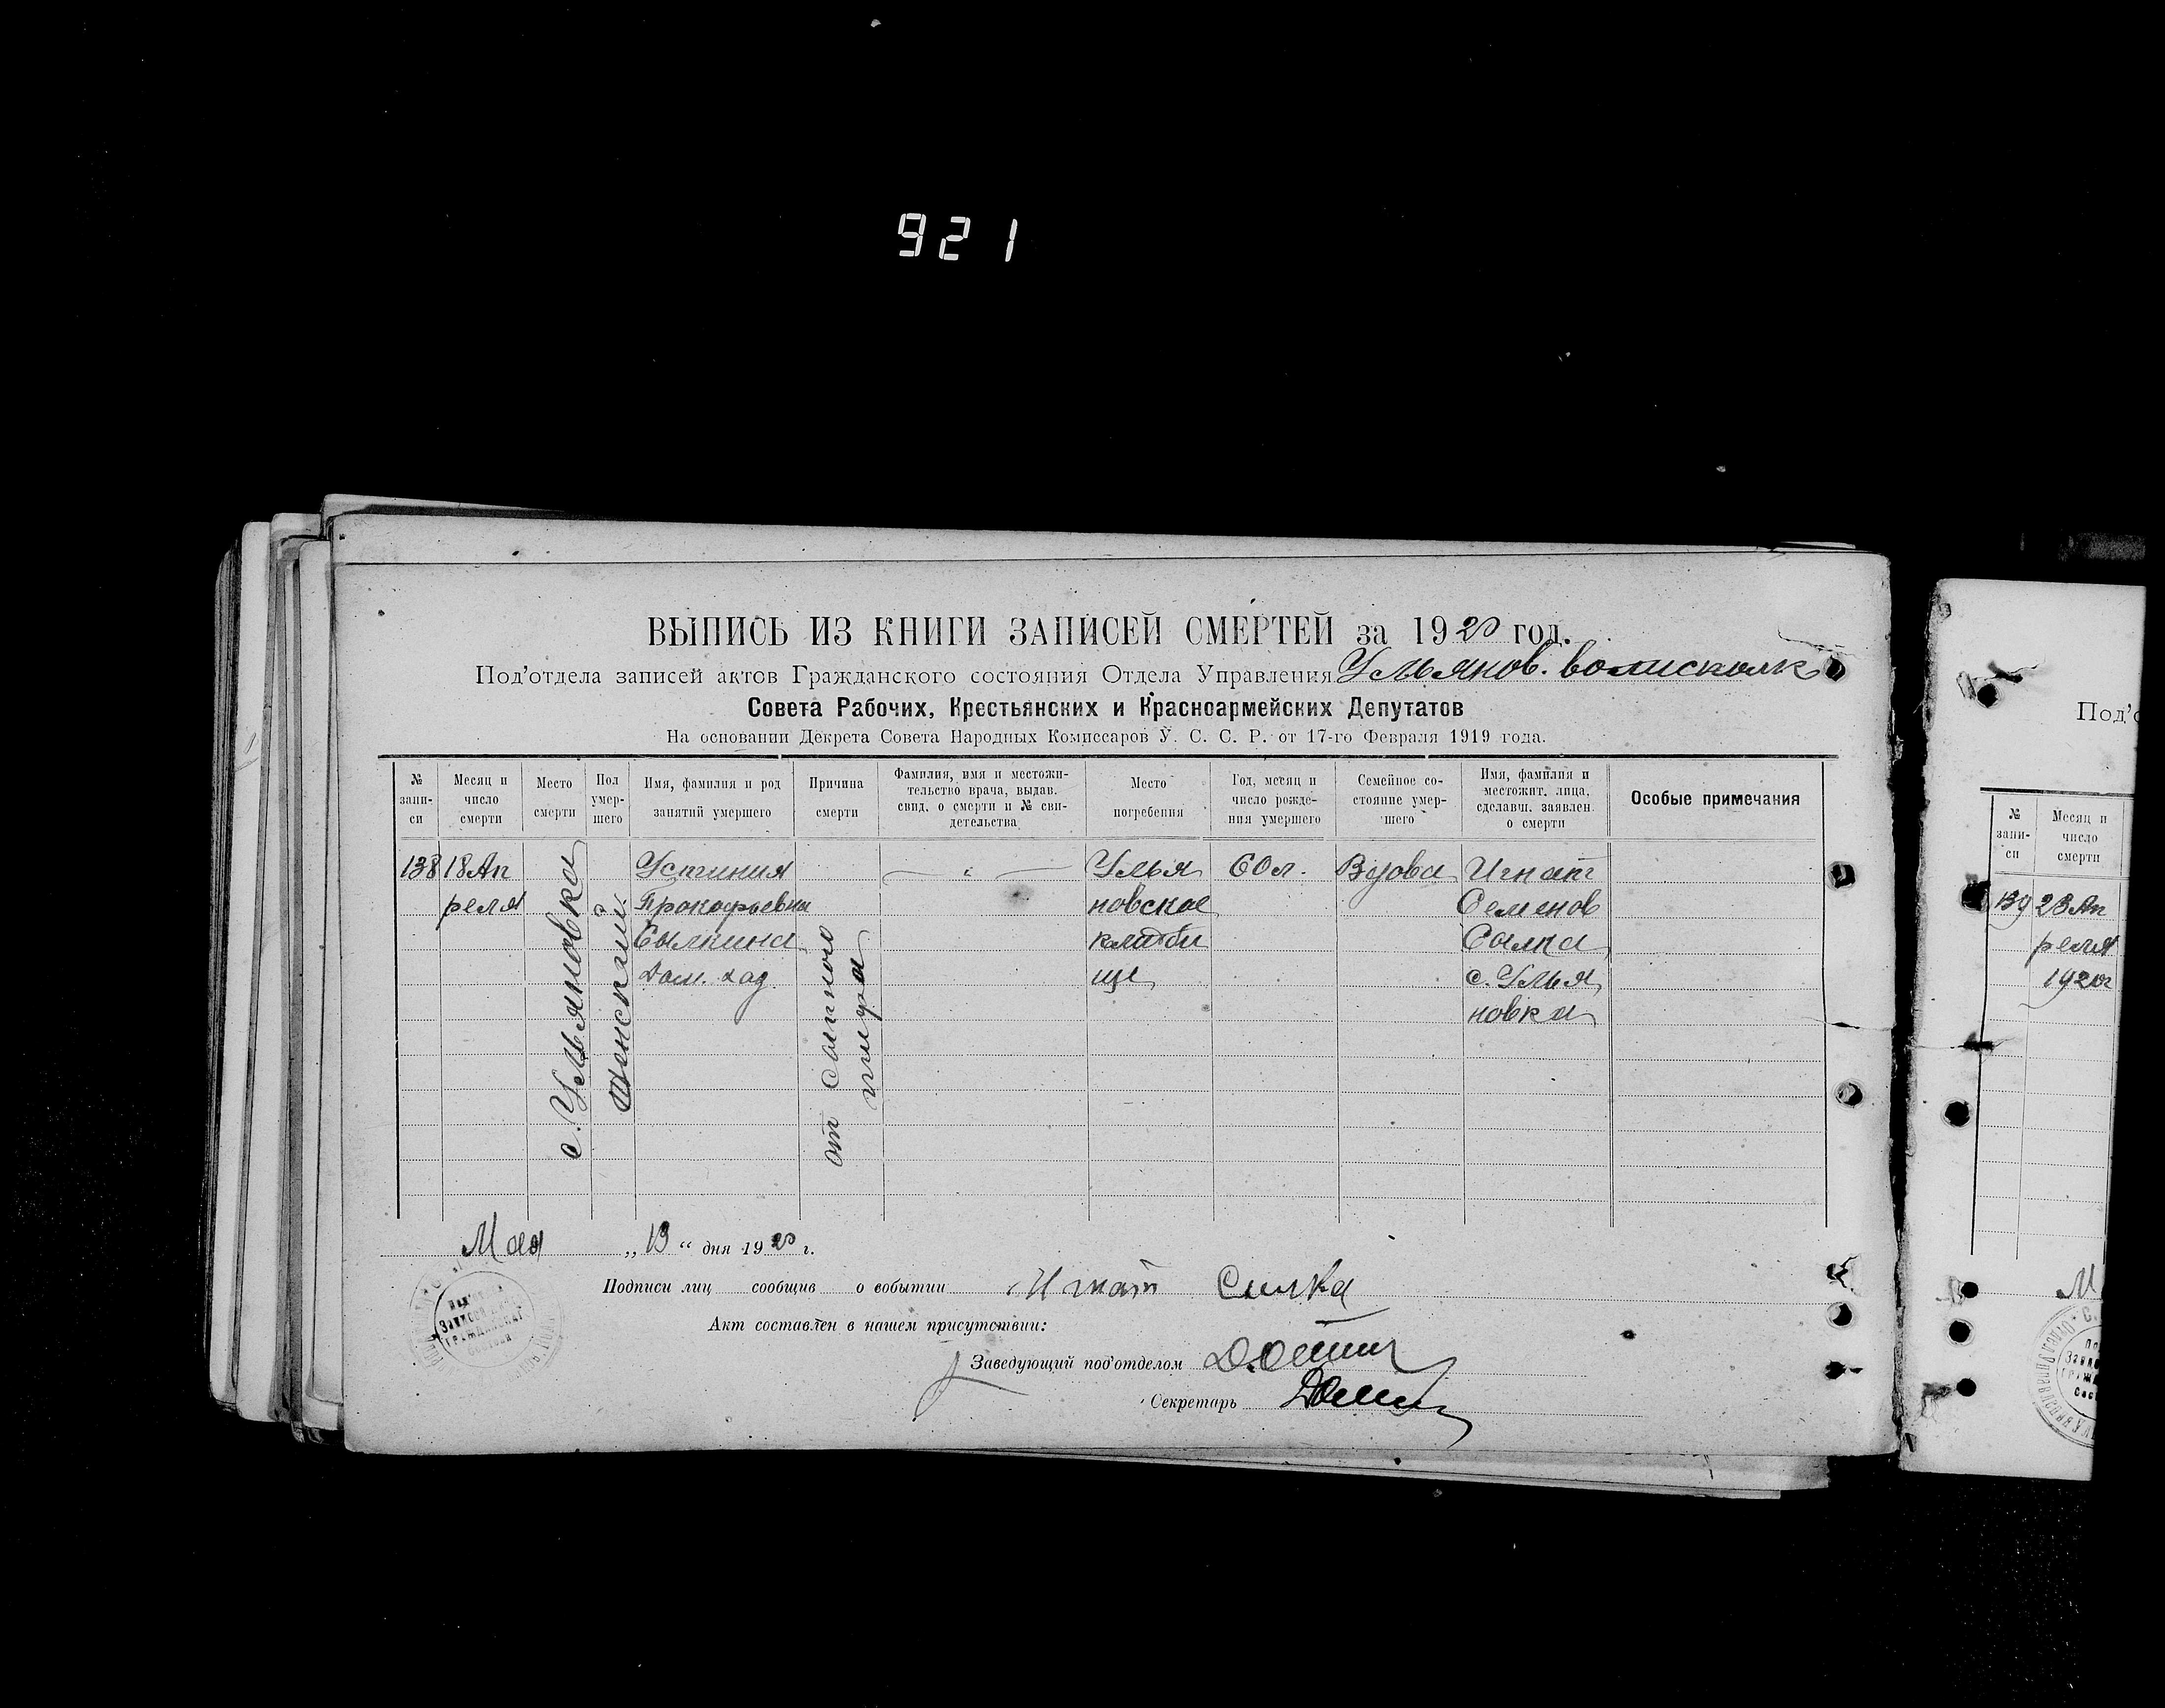 921
ВЫПИСЬ ИЗ КНИГИ ЗАПИСЕЙ СМЕРТЕЙ за 1920 год.
Под'отдела записей актов Гражданского состояния Отдела Управления Ульянов.
Совета Рабочих, Крестьянских и Красноармейских Депутатов
На основании Декрета Совета Народных Комиссаров У. С. С. Р. от 17-го Февраля 1919 года.
№ запи-
си
Месяц и
число
смерти
Место
смерти
Пол
умер-
шего
Имя, фамилия и род
занятий умершего
Причина
смерти
Фамилия, имя и местожи-
тельство врача, выдав.
свид. о смерти и № сви-
детельства
Место
погребения
Год, месяц и
число рожде-
ния умершего
Семейное со-
стояние умер-
шего
Имя, фамилия и
местожит. лица,
сделавш. заявлен.
о смерти
Особые примечания
138
18 Ап
реля
с. Ульяновка
Женский
Устиния
Прокофьевна
Сылкина
Дом. хоз.
от сыпного
тифа
Улья
новское
кладби
ще
60 л.
Вдова
Игнат
Семенов
Сылка
с. Улья
новка
Мая „13“ дня 1920 г.
Подписи лиц сообщив о событии Игнат Силка
Акт составлен в нашем присутствии:
Заведующий под'отделом
Секретарь
Под'о
№
запи-
си
Месяц и
число
смерти
139
28 Ап
реля
1920г
М